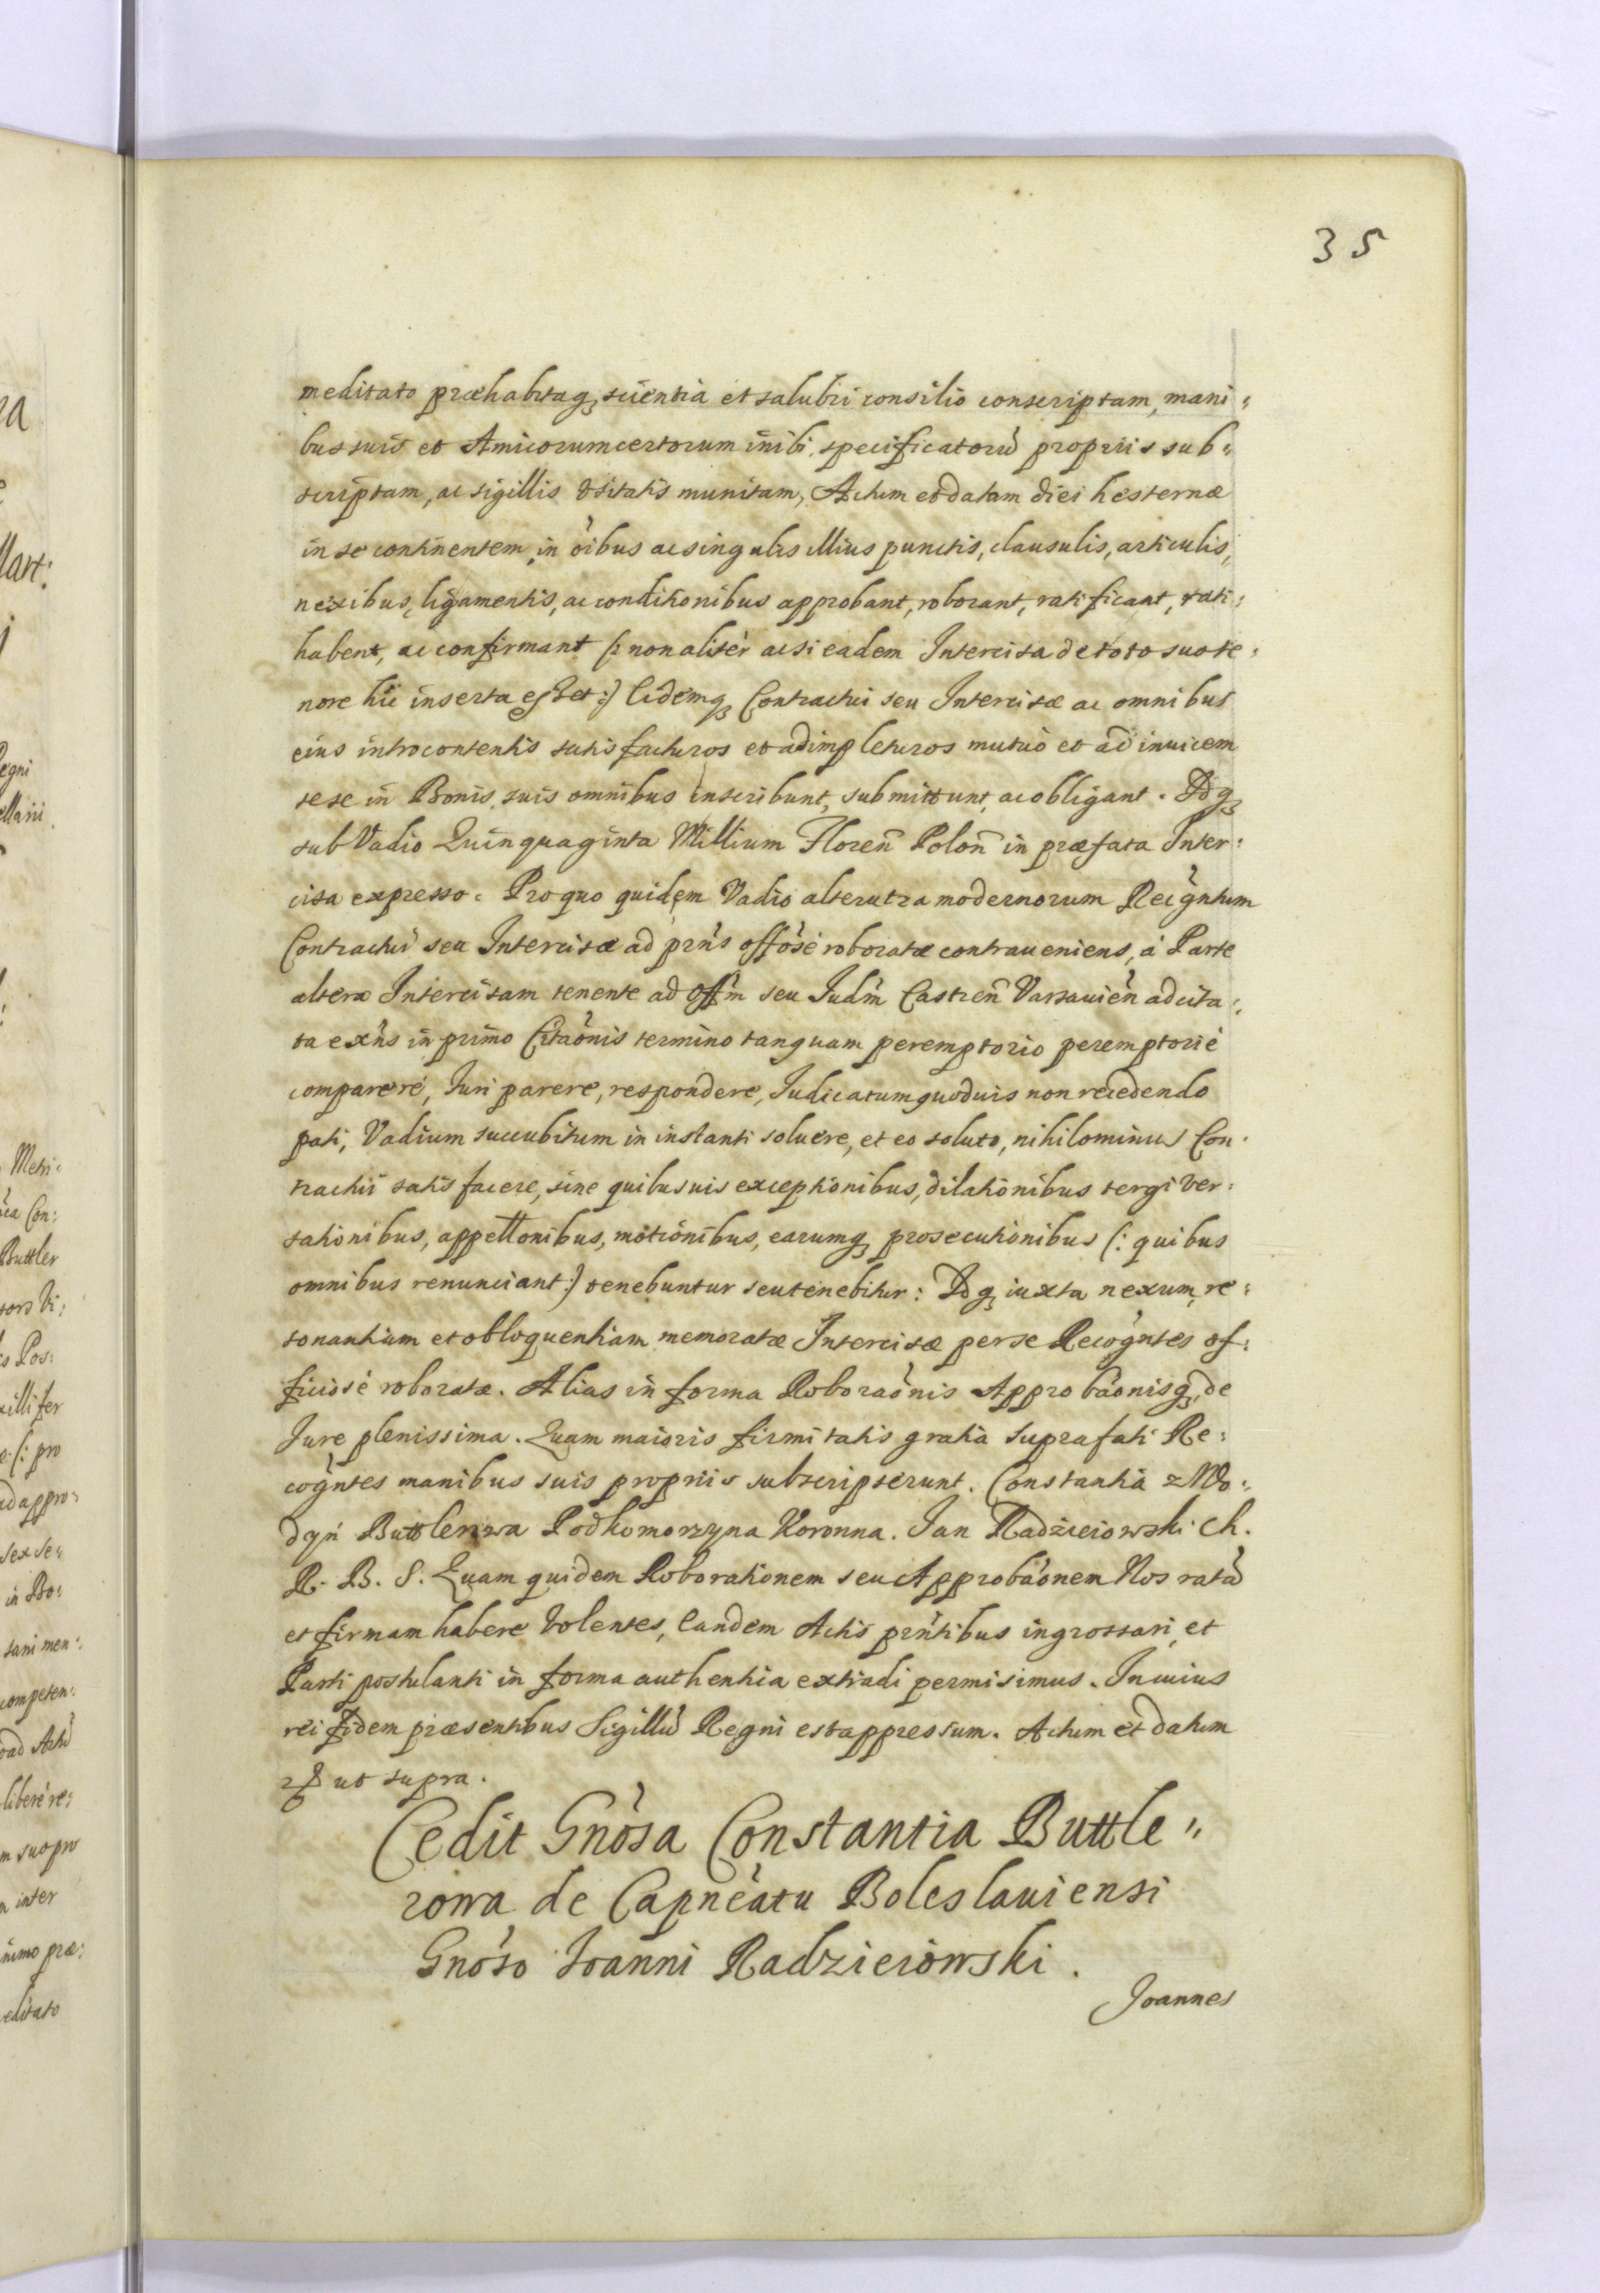 35
meditato præhabitaq scientia et salubri consilio conscriptam, mani:
bus suis et Amicorum certorum inibi specificatorũ proprijs sub:
scriptam, ac sigillis Vsitatis munitam, Actum et datam diei hesternæ
in se continentem, in oibus ac singulis illius punctis, clausulis, articulis,
nexibus, ligamentis, ac conditionibus approbant, roborant, ratificant, rati:
habent, ac confirmant (: non alitèr ac si eadem Intercisa de toto suo te:
nore hic inserta esset :) Eidemq Contractui seu Intercisæ ac omnibus
eius introcontentis satisfacturos et adimpleturos mutuò et ad inuicem
sese in Bonis suis omnibus inscribunt, submittunt, ac obligant. Idq
sub Vadio Quinquaginta Millium Floreñ Poloñ in præfata Inter:
cisa expresso. Pro quo quidem Vadio alterutra modernorum Recogntum
Contractui seu Intercisæ ad prñs offosè roboratæ contraueniens, à Parte
altera Intercisam tenente ad Offm seu Judm Castreñ Varsauień adcita:
ta exñs in primo Citaonis termino tanquam peremptorio peremptoriè
comparere, Juri parere, respondere, Judicatum quoduis non recedendo
pati, Vadium succubitum in instanti soluere, et eo soluto, nihilominus Con:
tractui satisfacere, sine quibusuis exceptionibus, dilationibus tergiver:
sationibus, appellonibus, motionibus, earumq prosecutionibus (: quibus
omnibus renunciant :) tenebuntur seu tenebitur: Idq iuxta nexum, re:
sonantiam et obloquentiam memoratæ Intercisæ per se Recogntes of:
ficiosè roboratæ. Alias in forma Roboraonis Approbaonisq, de
Jure plenissima. Quam maioris firmitatis gratia suprafati Re:
cogntes manibus suis proprijs subscripserunt. Constantia z Wo:
dyń Buttlerowa Podkomorzyna Koronna. Jan Radzieiowski Ch.
R. B. S. Quam quidem Roborationem seu Approbaonem Nos ratã
et firmam habere Volentes, Eandem Actis prñtibus ingrossari, et
Parti postulanti in forma authentica extradi permisimus. In cuius
rei fidem præsentibus Sigillũ Regni est appressum. Actum et datum
ut supra.
Cedit Gnosa Constantia Buttle:
rowa de Capneatu Boleslauiensi
Gnoso Ioanni Radzieiowski.
Joannes